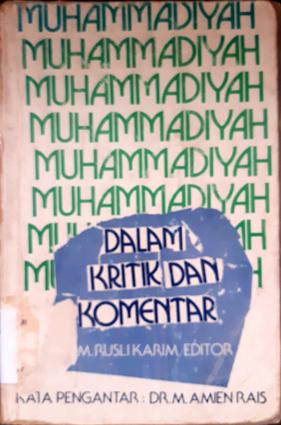 MUHAMMADIYAH
MUHAMMADIYAH
MUHAMMADIYAH
MUHAMMADIYAH
MUHAMMADIYAH
MUHAMMADIYAH
DALAM
KRITIK DAN
KOMENTAR
M. RUSLI KARIM, EDITOR
KATA PENGANTAR : DR. M. AMIEN RAIS